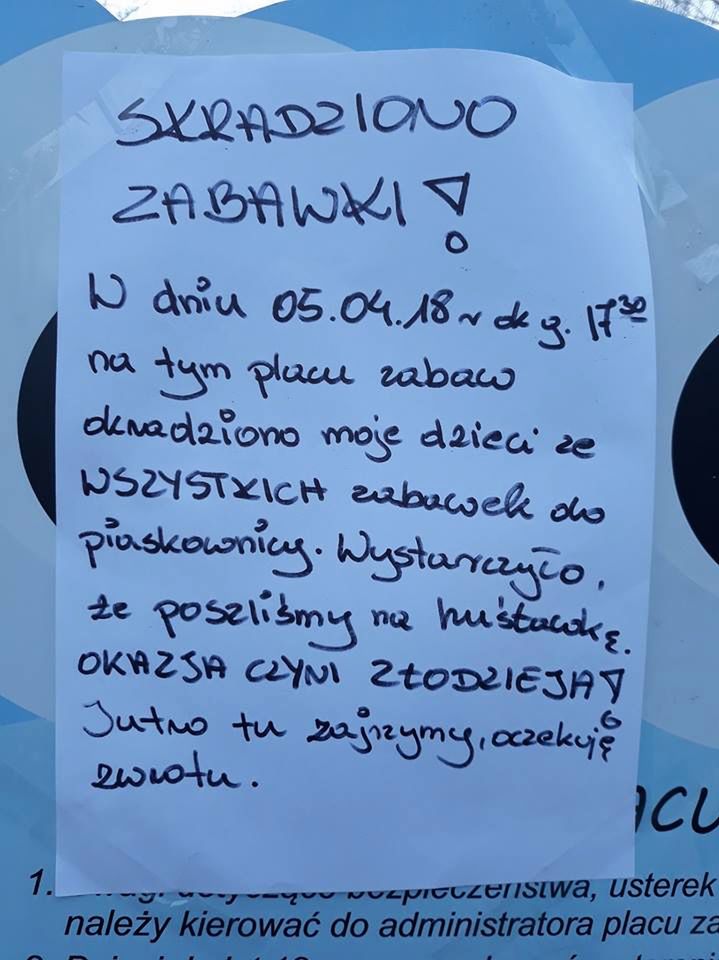 SKRADZIONO
ZABAWKI!
W dniu 05.04.18 ~ ok g. 17³⁰
na tym placu zabaw
okradziono moje dzieci ze
WSZYSTKICH zabawek do
piaskownicy. Wystarczyło,
że poszliśmy na huśtawkę.
OKAZJA CZYNI ZŁODZIEJA!
Jutro tu zajrzymy, oczekuję
zwrotu.
ACU
1. bezpieczeństwa, usterek
należy kierować do administratora placu za